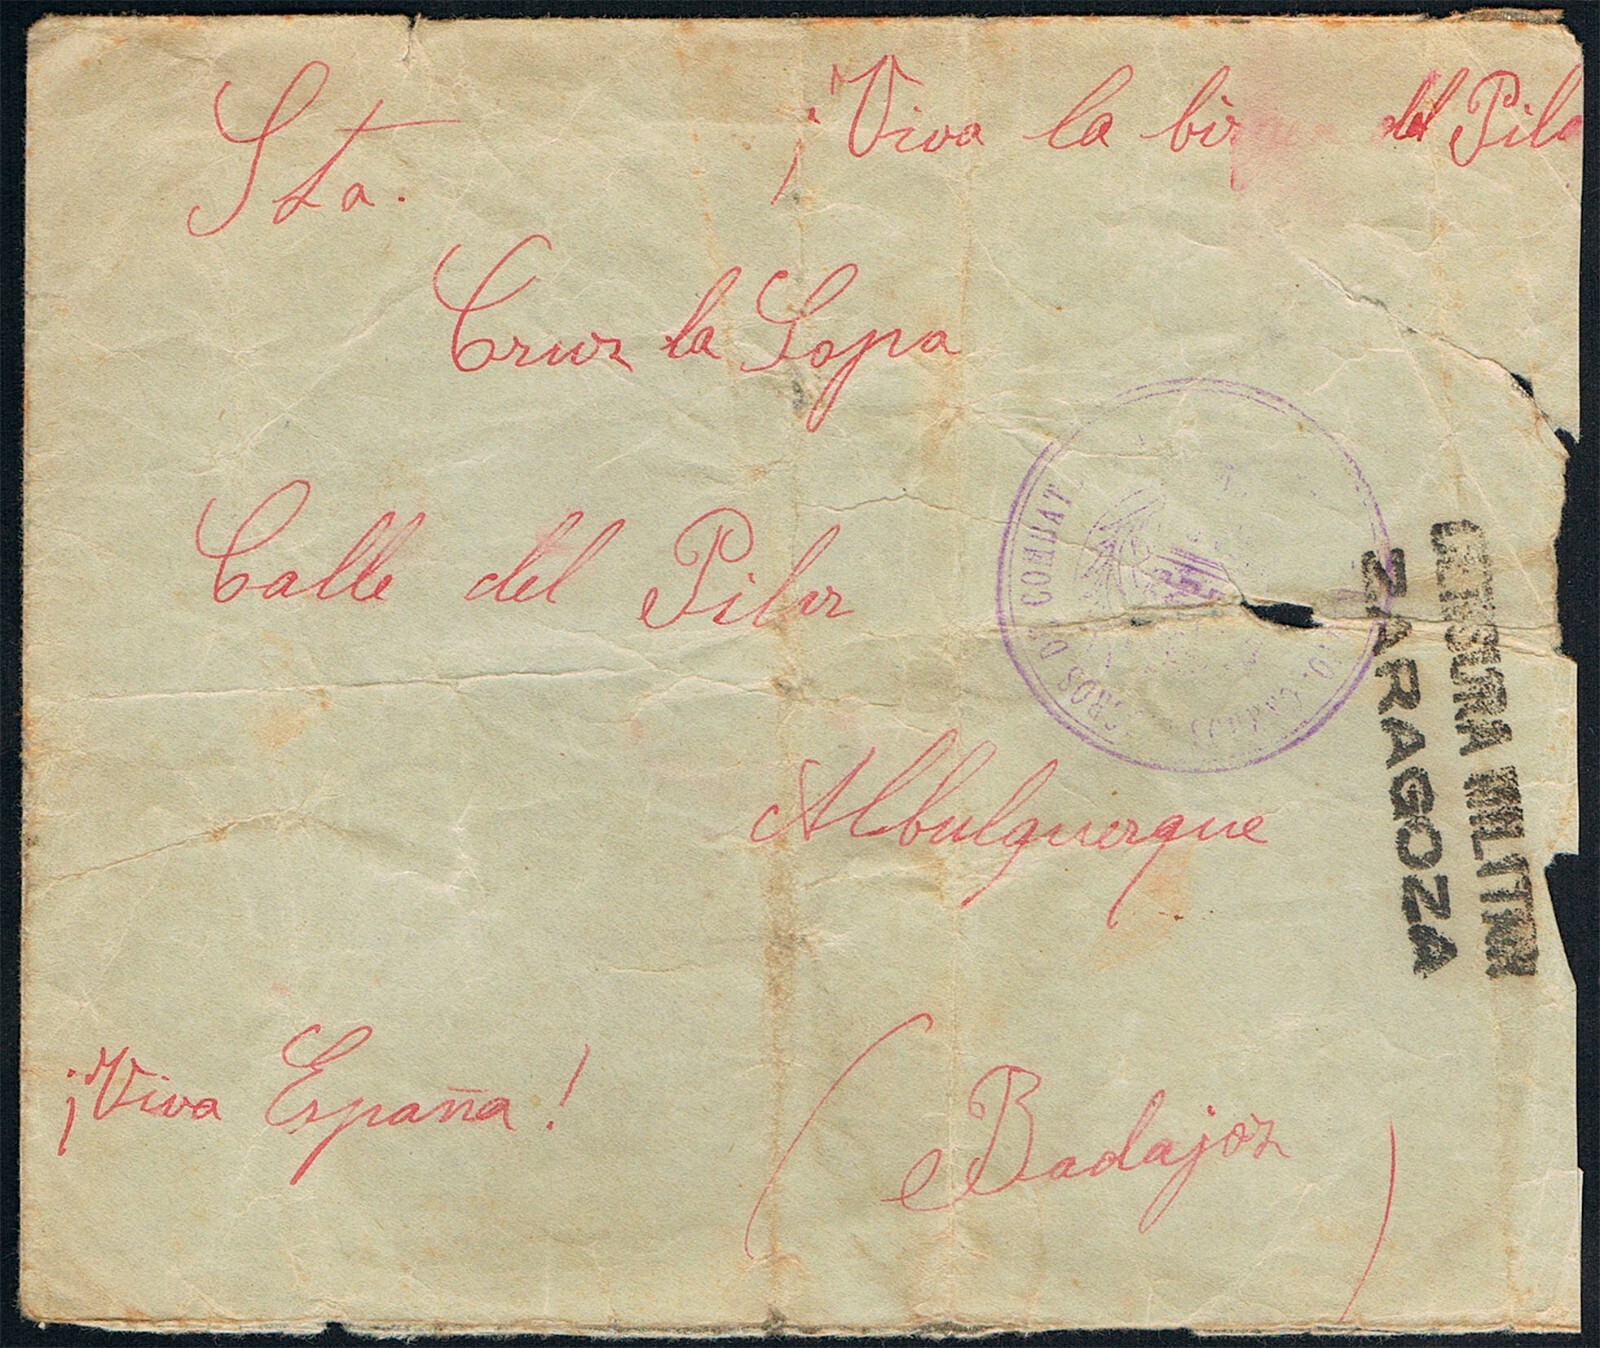 Sta.
¡Viva la bir del Pila
Cruz la Sopa
Calle del Pilar
CARROS DE COMBATE
CENSURA MILITAR
ZARAGOZA
Albulquerque
¡Viva España!
(Badajoz)